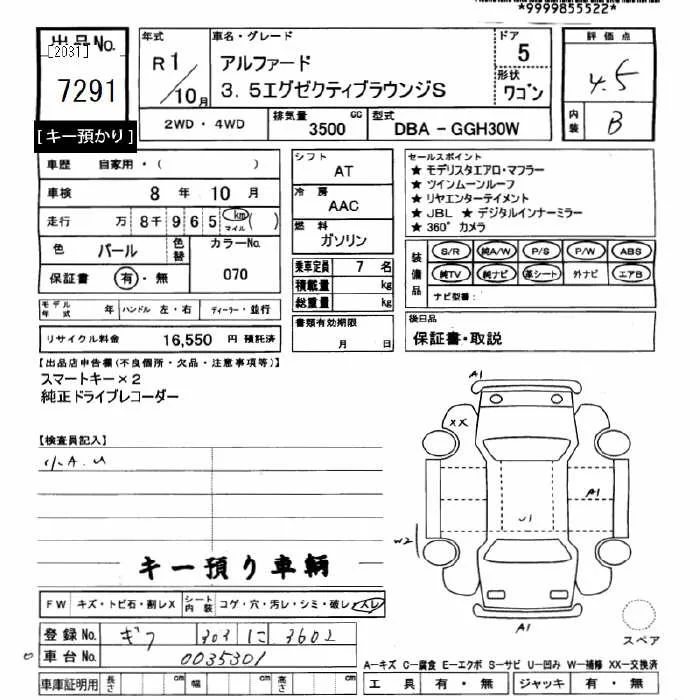 *9999855522*
出品No.
[2031]
7291
[キー預かり]
年式
R1/10月
車名・グレード
アルファード
3.5エグゼクティブラウンジS
ドア
5
形状
ワゴン
評価点
4.5
内装
B
2WD・4WD
排気量
3500
cc
型式
DBA - GGH30W
車歴 自家用・( )
車検 8年 10月
走行 万 8千 965 km マイル ( )
色 パール
色替
カラーNo.
070
保証書 有・無
モデル年式 年
ハンドル 左・右
ディーラー・並行
リサイクル料金 16,550 円 預託済
シフト
AT
冷房
AAC
燃料
ガソリン
乗車定員 7 名
積載量 kg
総重量 kg
書類有効期限
月 日
セールスポイント
★ モデリスタエアロ・マフラー
★ ツインムーンルーフ
★ リヤエンターテイメント
★ JBL ★ デジタルインナーミラー
★ 360° カメラ
装備品
S/R 純A/W P/S P/W ABS
純TV 純ナビ 革シート 外ナビ エアB
ナビ型番:
後日品
保証書・取説
【出品店申告欄(不良個所・欠品・注意事項等)】
スマートキー×2
純正ドライブレコーダー
【検査員記入】
小A.U
キー預り車輌
FW キズ・トビ石・割レX
シート内装 コゲ・穴・汚レ・シミ・破レ・スレ
登録No. ギフ 303 に 3602
車台No. 0035301
車庫証明用 長さ cm 幅 cm 高さ cm
A1
XX
A1
U1
W2
A1
スペア
A-キズ C-腐食 E-エクボ S-サビ U-凹み W-補修 XX-交換済
工具 有・無 ジャッキ 有・無